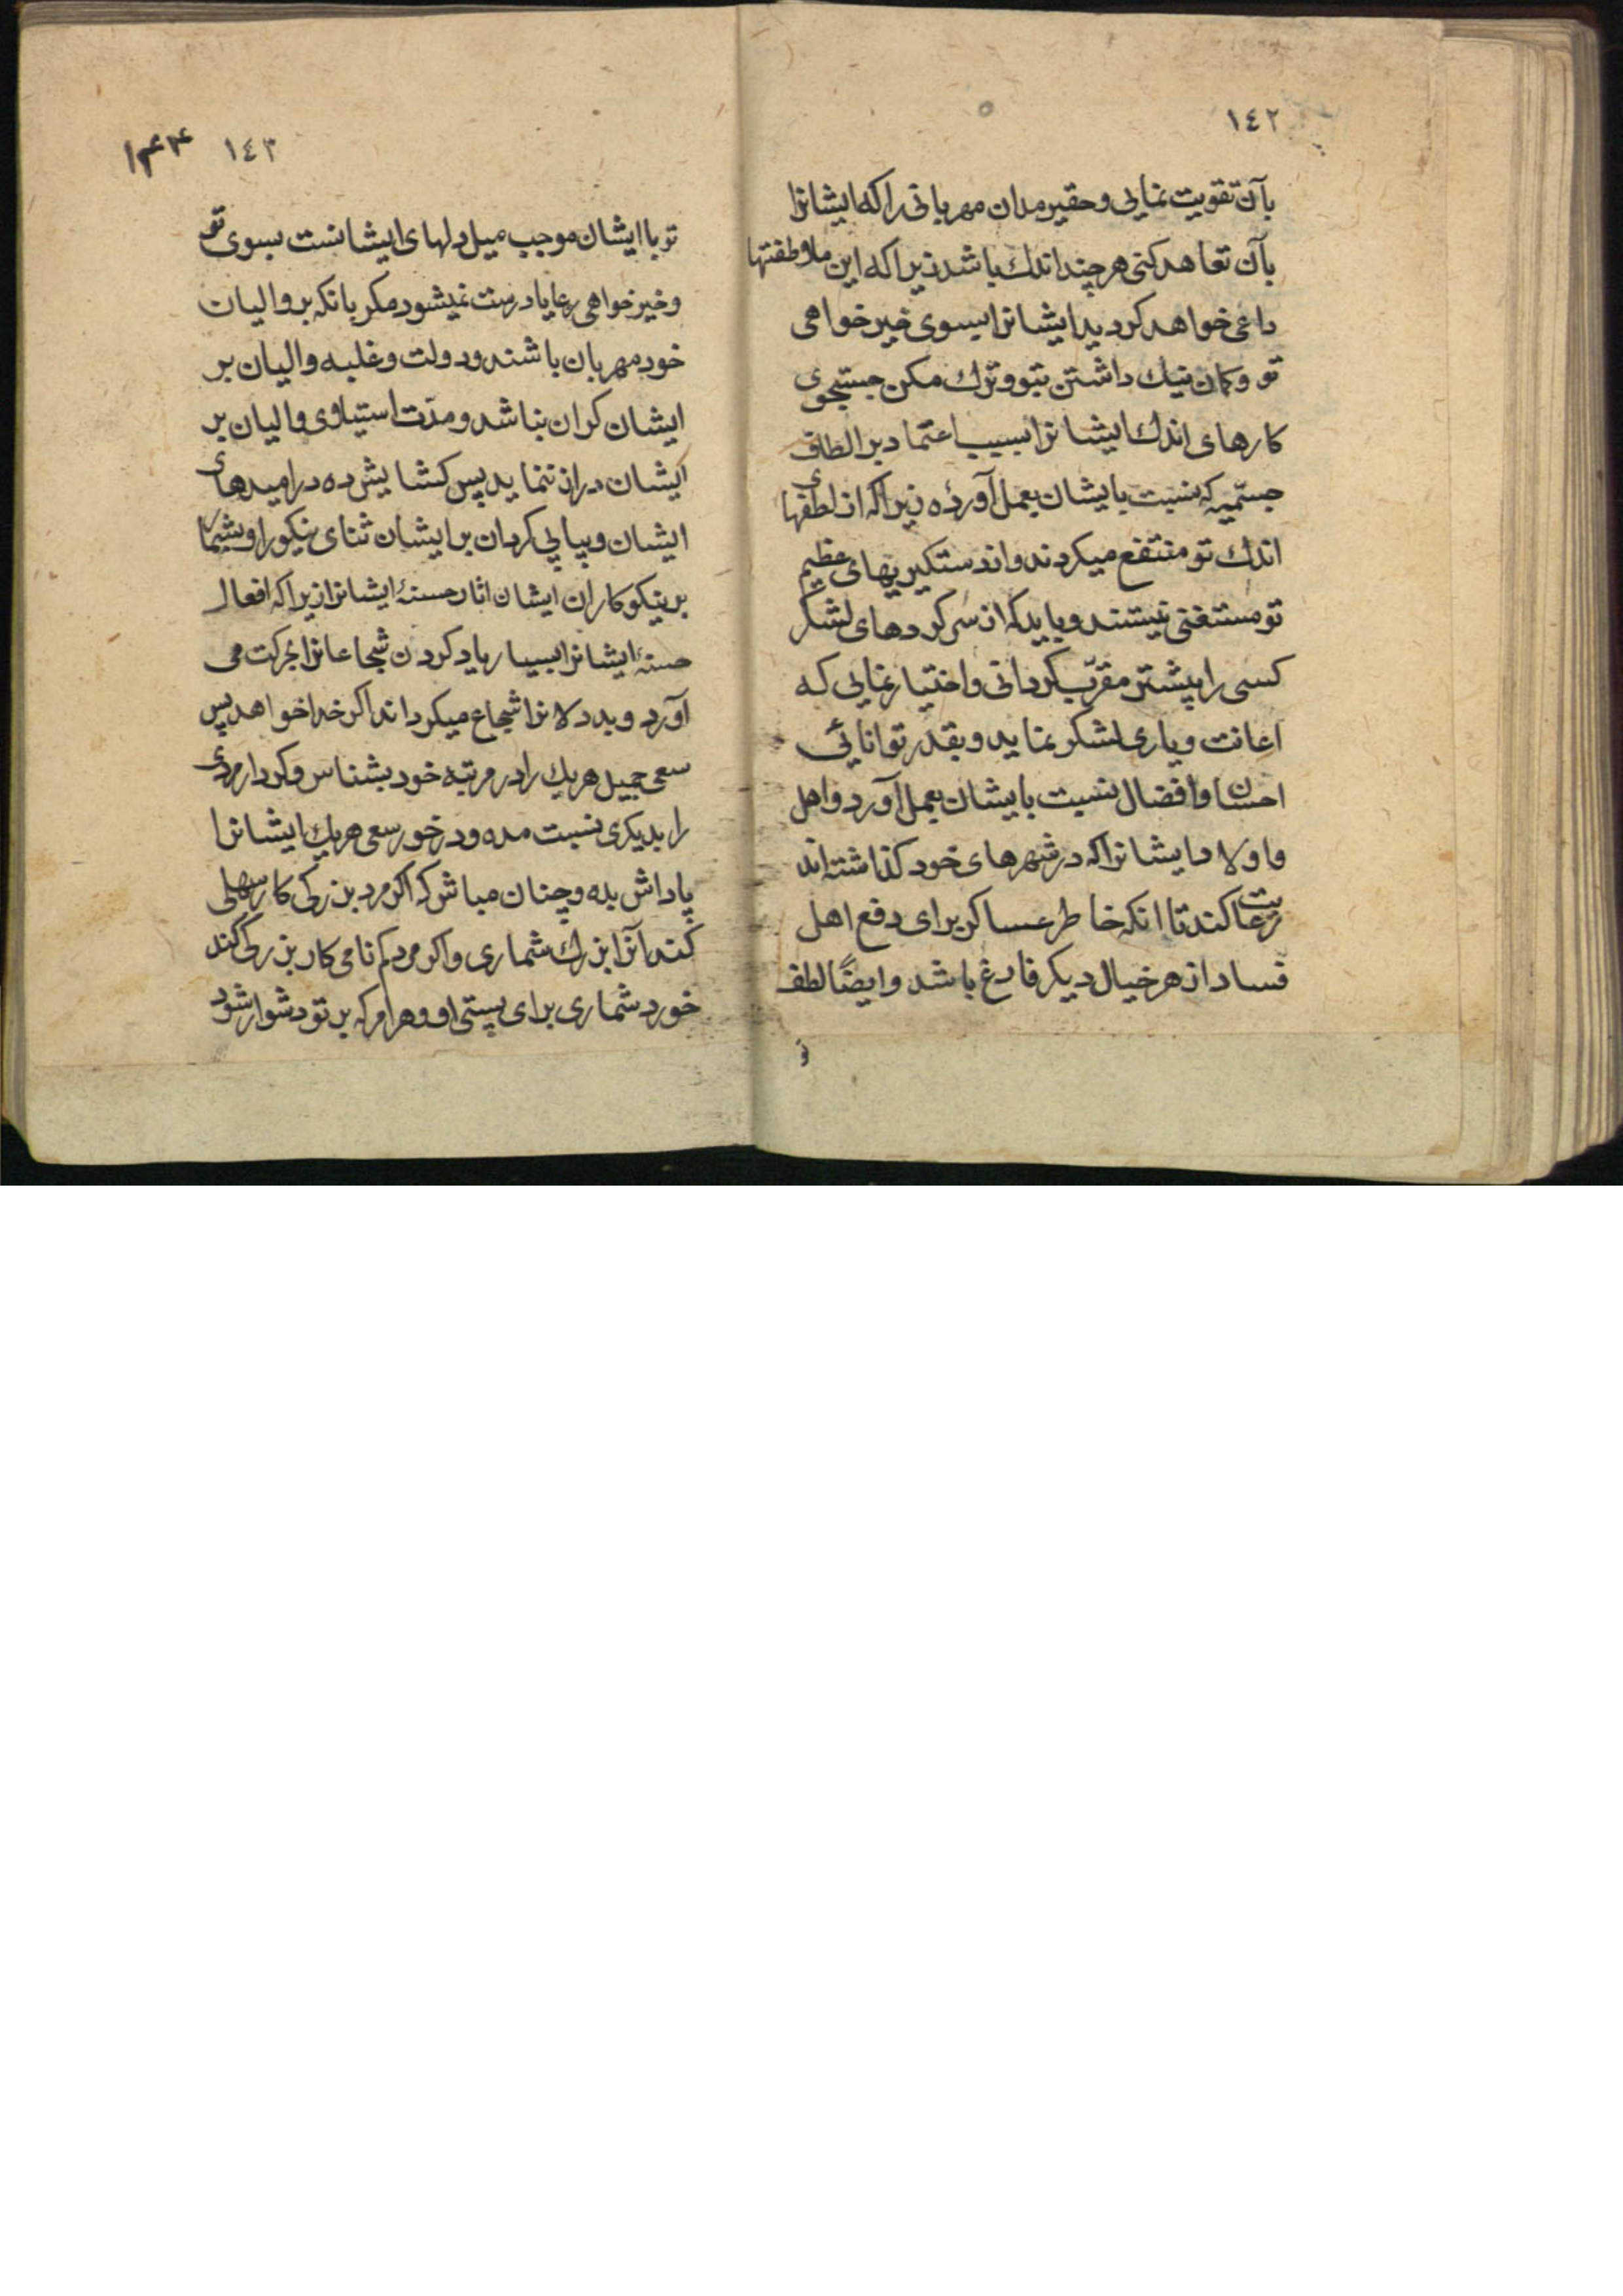 ١٤٢
بآن تقویت نمایی و حقیر مدان مهربانی را که ایشانرا
بآن تعاهد کنی هر چند اندك باشد زیرا که این ملاطفتها
داعی خواهد کردید ایشانرا بسوی خیر خواهی
تو و کمان نیك داشتن بتو و ترك مکن جستجوی
کارهای اندك ایشانرا بسبب اعتماد بر الطاف
جسیمه که نسبت بایشان بعمل آوردۀ زیرا که از لطفهای
اندك تو منتفع میکردند و از دستکیریهای عظیم
تو مستغنی نیستند و باید که از سرکردهای لشکر
کسی را پیشتر مقرب کردانی و اختیار نمایی که
اعانت و یاری لشکر نماید و بقدر توانائی
احسان و افضال نسبت بایشان بعمل آورد و اهل
و اولاد ایشانرا که در شهرهای خود کذاشته اند
رعایت کند تا انکه خاطر عساکر برای دفع اهل
فساد از هر خیال دیکر فارغ باشد و ایضًا لطف
١٤٣ ۱۴۴
تو با ایشان موجب میل دلهای ایشانست بسوی تو
و خیر خواهی رعایا درست نمیشود مکر بانکه بر والیان
خود مهربان باشند و دولت و غلبه والیان بر
ایشان کران نباشد و مدّت استیلاوی والیان بر
ایشان دراز ننماید پس کشایش ده در امیدهای
ایشان و پیاپی کردان بر ایشان ثنای نیکو را و بشمار
بر نیکوکاران ایشان اثار حسنۀ ایشانرا زیرا که افعال
حسنۀ ایشانرا بسیار یاد کردن شجاعانرا بحرکت می
آورد و بددلانرا شجاع میکرداند اکر خدا خواهد پس
سعی جمیل هر یك را در مرتبه خود بشناس و کردار مردی
را بدیکری نسبت مده و در خور سعی هر یك ایشانرا
پاداش بده و چنان مباش که اکر مرد بزرکی کار سهلی
کند آنرا بزرك شماری و اکر مرد کم نامی کار بزرکی کند
خورد شماری برای پستی او و هر امر که بر تو دشوار شود